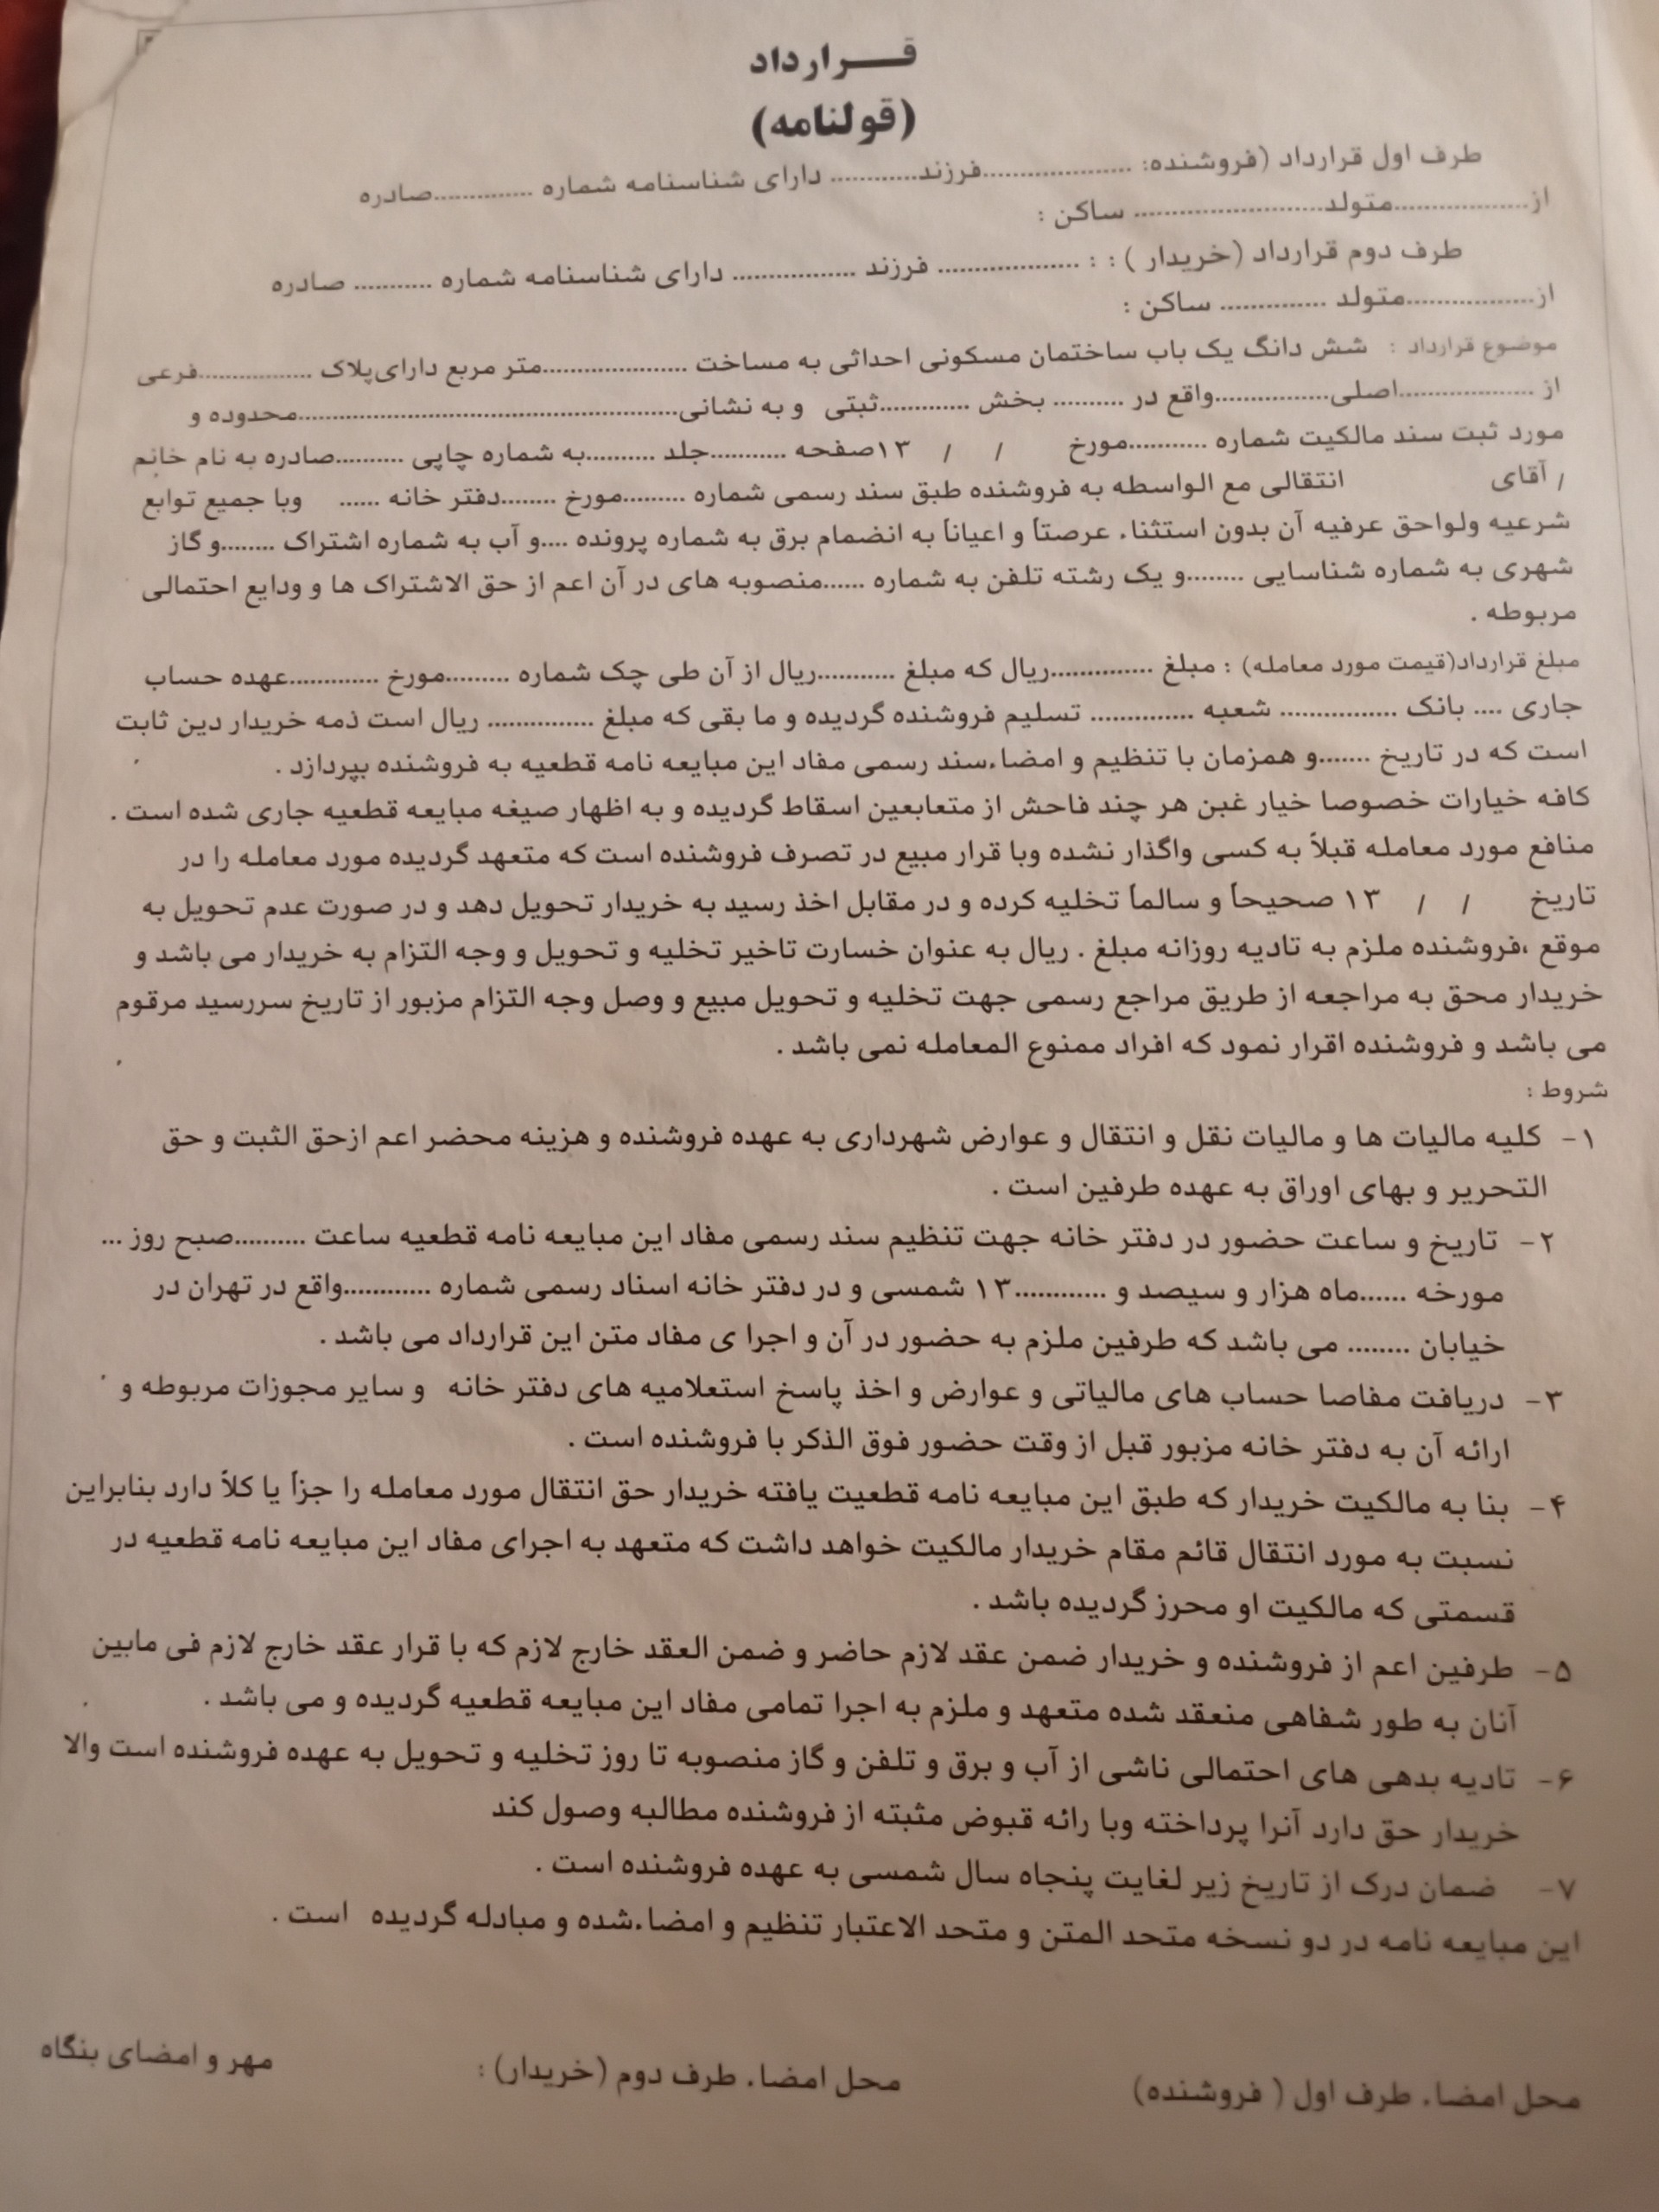 قـــرارداد
(قولنامه)
طرف اول قرارداد (فروشنده: ....................فرزند............ دارای شناسنامه شماره .............صادره
از..................متولد......................... ساکن :
طرف دوم قرارداد (خریدار ) : : ................... فرزند ................ دارای شناسنامه شماره .......... صادره
از.................متولد .............. ساکن :
موضوع قرارداد : شش دانگ یک باب ساختمان مسکونی احداثی به مساخت ...................متر مربع دارای پلاک ...............فرعی
از ..................اصلی...............واقع در ......... بخش ............ثبتی و به نشانی..................................................محدوده و
مورد ثبت سند مالکیت شماره ...........مورخ / / ۱۳صفحه ..........جلد .........به شماره چاپی .........صادره به نام خانم
/ آقای انتقالی مع الواسطه به فروشنده طبق سند رسمی شماره .........مورخ ........دفتر خانه ...... وبا جمیع توابع
شرعیه ولواحق عرفیه آن بدون استثناء عرصتاً و اعیاناً به انضمام برق به شماره پرونده ....و آب به شماره اشتراک ........و گاز
شهری به شماره شناسایی ........و یک رشته تلفن به شماره ......منصوبه های در آن اعم از حق الاشتراک ها و ودایع احتمالی
مربوطه .
مبلغ قرارداد(قیمت مورد معامله) : مبلغ ..............ریال که مبلغ ...........ریال از آن طی چک شماره .........مورخ ............عهده حساب
جاری .... بانک ................ شعبه .............. تسلیم فروشنده گردیده و ما بقی که مبلغ ............... ریال است ذمه خریدار دین ثابت
است که در تاریخ .......و همزمان با تنظیم و امضاءسند رسمی مفاد این مبایعه نامه قطعیه به فروشنده بپردازد .
کافه خیارات خصوصا خیار غبن هر چند فاحش از متعابعین اسقاط گردیده و به اظهار صیغه مبایعه قطعیه جاری شده است .
منافع مورد معامله قبلاً به کسی واگذار نشده وبا قرار مبیع در تصرف فروشنده است که متعهد گردیده مورد معامله را در
تاریخ / / ۱۳ صحیحاً و سالماً تخلیه کرده و در مقابل اخذ رسید به خریدار تحویل دهد و در صورت عدم تحویل به
موقع ،فروشنده ملزم به تادیه روزانه مبلغ . ریال به عنوان خسارت تاخیر تخلیه و تحویل و وجه التزام به خریدار می باشد و
خریدار محق به مراجعه از طریق مراجع رسمی جهت تخلیه و تحویل مبیع و وصل وجه التزام مزبور از تاریخ سررسید مرقوم
می باشد و فروشنده اقرار نمود که افراد ممنوع المعامله نمی باشد .
شروط :
۱- کلیه مالیات ها و مالیات نقل و انتقال و عوارض شهرداری به عهده فروشنده و هزینه محضر اعم ازحق الثبت و حق
التحریر و بهای اوراق به عهده طرفین است .
۲- تاریخ و ساعت حضور در دفتر خانه جهت تنظیم سند رسمی مفاد این مبایعه نامه قطعیه ساعت ..........صبح روز ...
مورخه ......ماه هزار و سیصد و ............۱۳ شمسی و در دفتر خانه اسناد رسمی شماره ............واقع در تهران در
خیابان ........ می باشد که طرفین ملزم به حضور در آن و اجرا ی مفاد متن این قرارداد می باشد .
۳- دریافت مفاصا حساب های مالیاتی و عوارض و اخذ پاسخ استعلامیه های دفتر خانه و سایر مجوزات مربوطه و
ارائه آن به دفتر خانه مزبور قبل از وقت حضور فوق الذکر با فروشنده است .
۴- بنا به مالکیت خریدار که طبق این مبایعه نامه قطعیت یافته خریدار حق انتقال مورد معامله را جزاً یا کلاً دارد بنابراین
نسبت به مورد انتقال قائم مقام خریدار مالکیت خواهد داشت که متعهد به اجرای مفاد این مبایعه نامه قطعیه در
قسمتی که مالکیت او محرز گردیده باشد .
۵- طرفین اعم از فروشنده و خریدار ضمن عقد لازم حاضر و ضمن العقد خارج لازم که با قرار عقد خارج لازم فی مابین
آنان به طور شفاهی منعقد شده متعهد و ملزم به اجرا تمامی مفاد این مبایعه قطعیه گردیده و می باشد .
۶- تادیه بدهی های احتمالی ناشی از آب و برق و تلفن و گاز منصوبه تا روز تخلیه و تحویل به عهده فروشنده است والا
خریدار حق دارد آنرا پرداخته وبا رائه قبوض مثبته از فروشنده مطالبه وصول کند
۷- ضمان درک از تاریخ زیر لغایت پنجاه سال شمسی به عهده فروشنده است .
این مبایعه نامه در دو نسخه متحد المتن و متحد الاعتبار تنظیم و امضاءشده و مبادله گردیده است .
محل امضاء طرف اول ( فروشنده) محل امضاء طرف دوم (خریدار) : مهر و امضای بنگاه